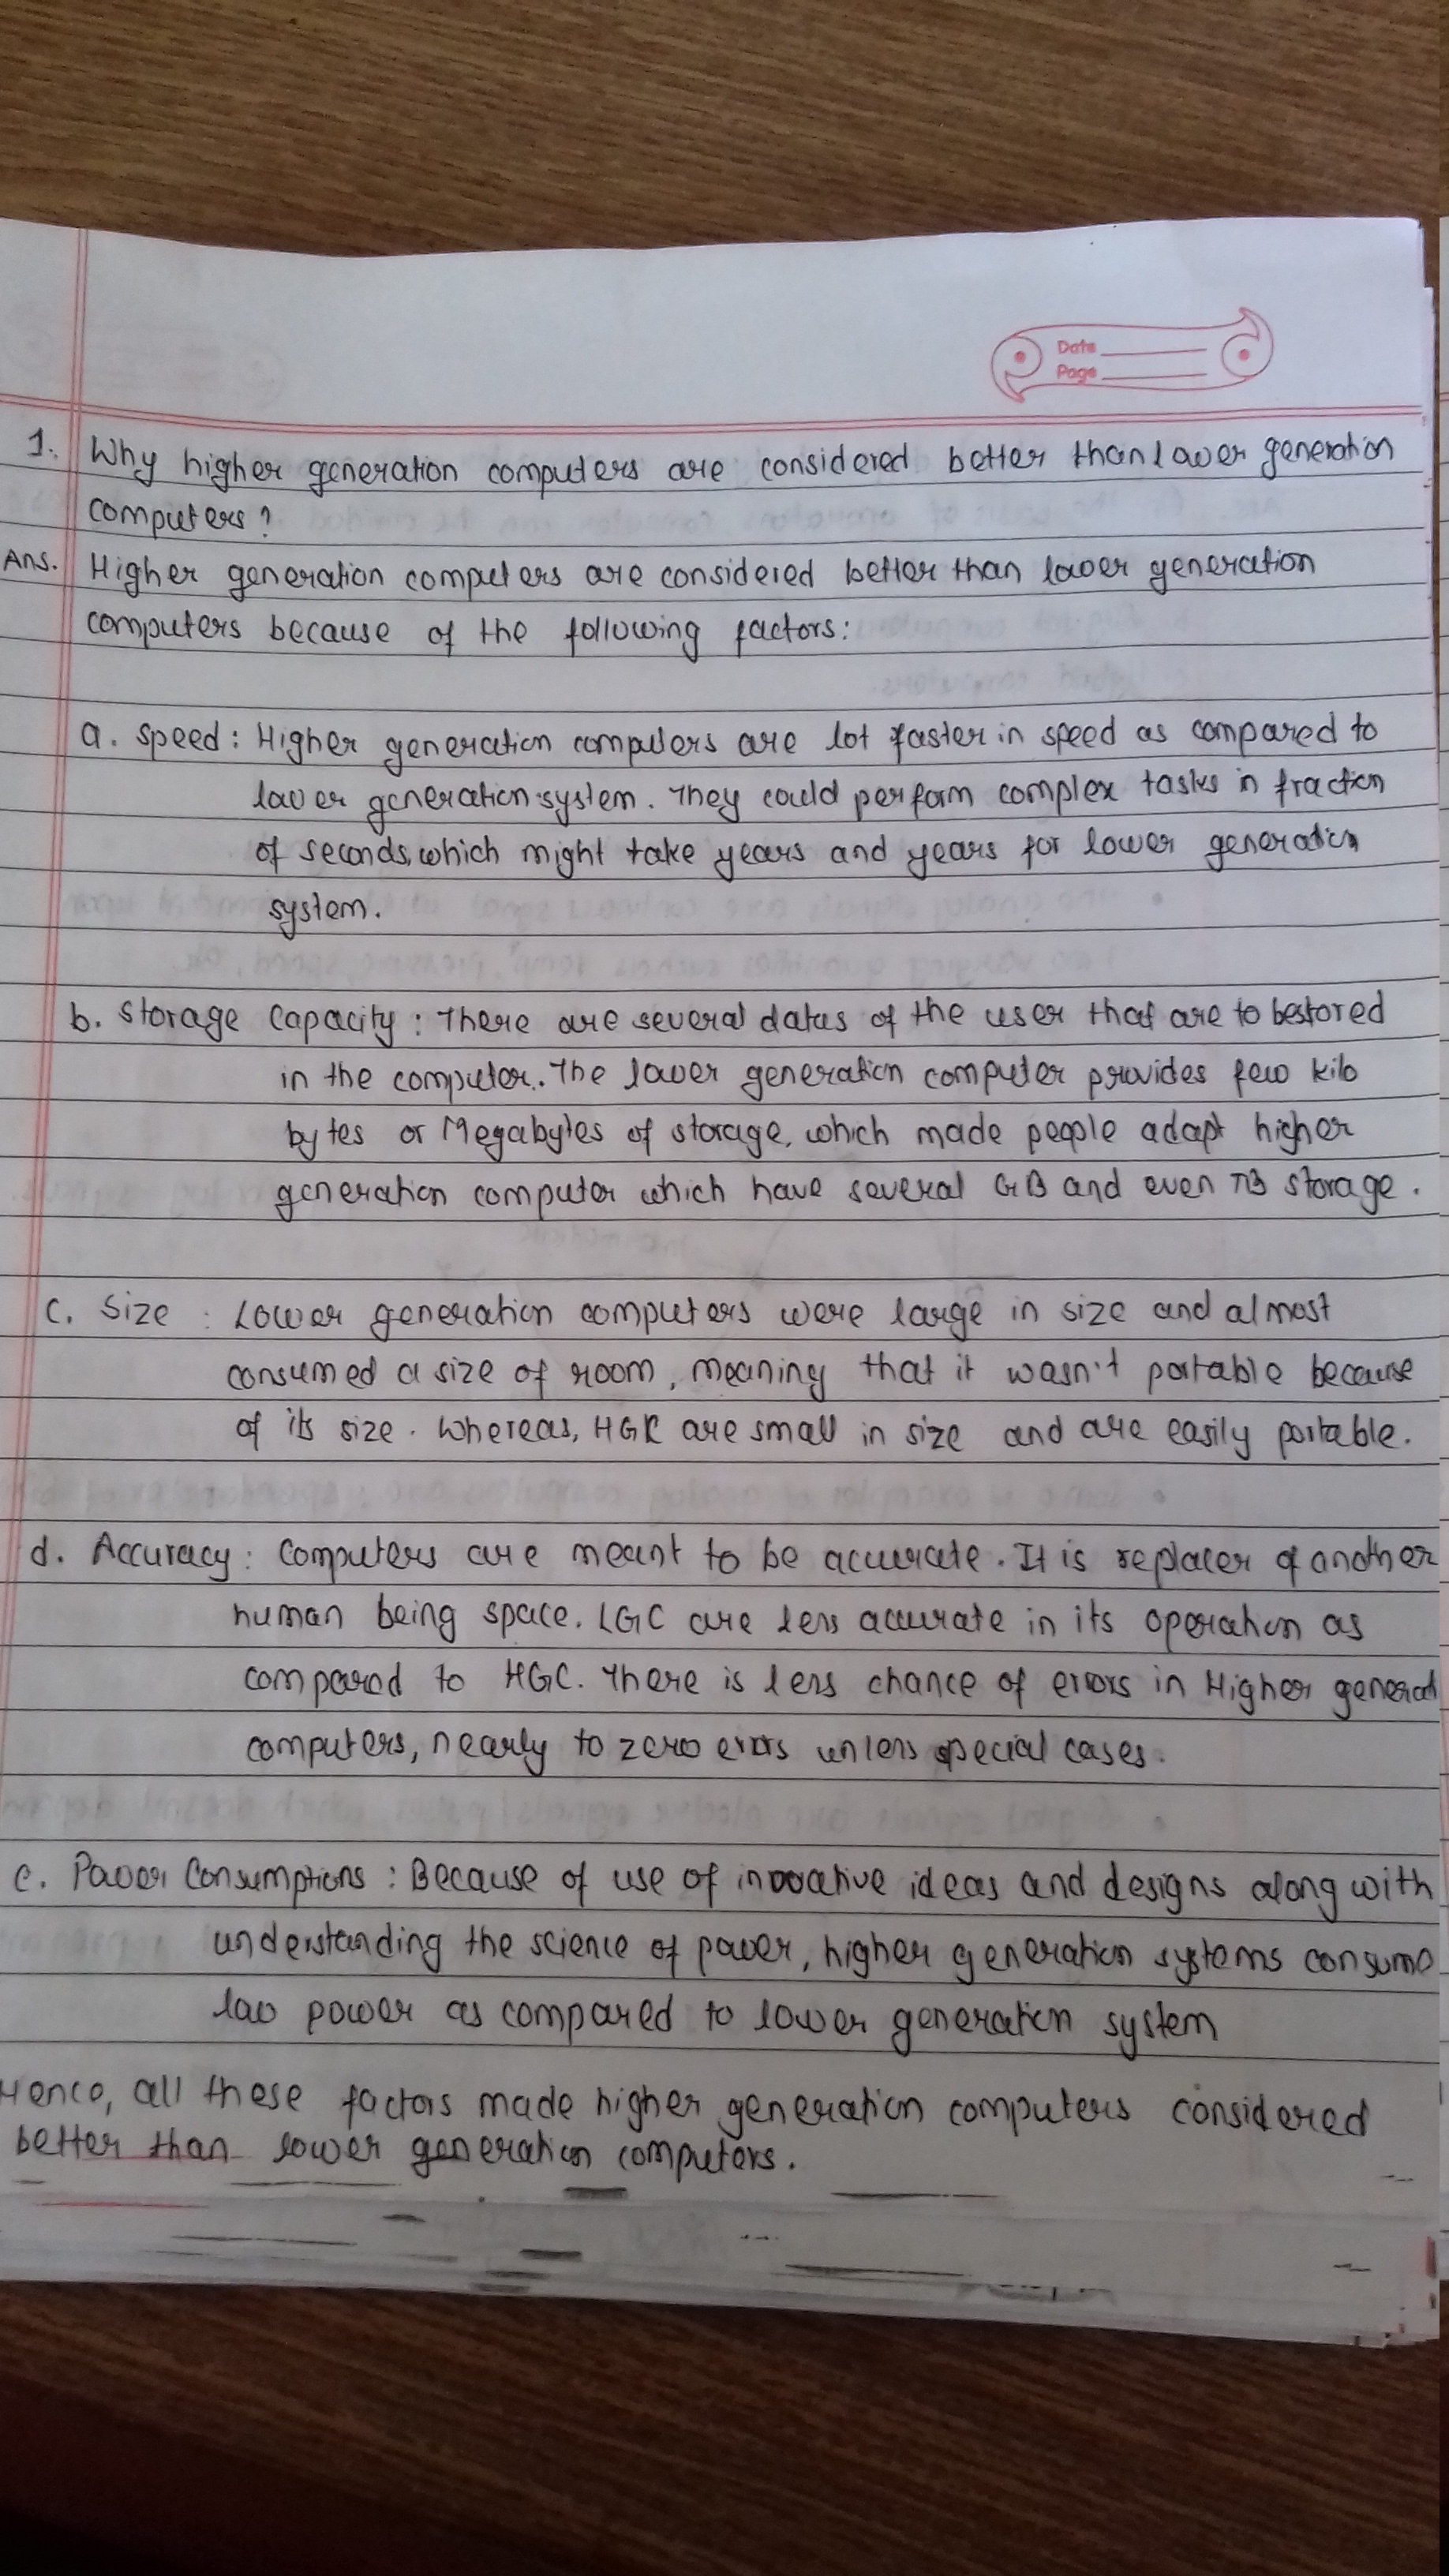 Date
Page
1. Why higher generation computers are considered better than lower generation
computers?
Ans. Higher generation computers are considered better than lower generation
computers because of the following factors:
a. Speed: Higher generation computers are lot faster in speed as compared to
lower generation system. They could perform complex tasks in fraction
of seconds, which might take years and years for lower generation
system.
b. Storage Capacity: There are several datas of the user that are to be stored
in the computer. The lower generation computer provides few kilo
bytes or Megabytes of storage, which made people adapt higher
generation computer which have several GB and even TB storage.
c. Size : Lower generation computers were large in size and almost
consumed a size of room, meaning that it wasn't portable because
of its size. Whereas, HGC are small in size and are easily portable.
d. Accuracy: Computers are meant to be accurate. It is replacer of another
human being space. LGC are less accurate in its operation as
compared to HGC. There is less chance of errors in Higher generat
computers, nearly to zero errors unless special cases.
e. Power Consumptions : Because of use of innovative ideas and designs along with
understanding the science of power, higher generation systems consume
low power as compared to lower generation system
Hence, all these factors made higher generation computers considered
better than lower generation computers.